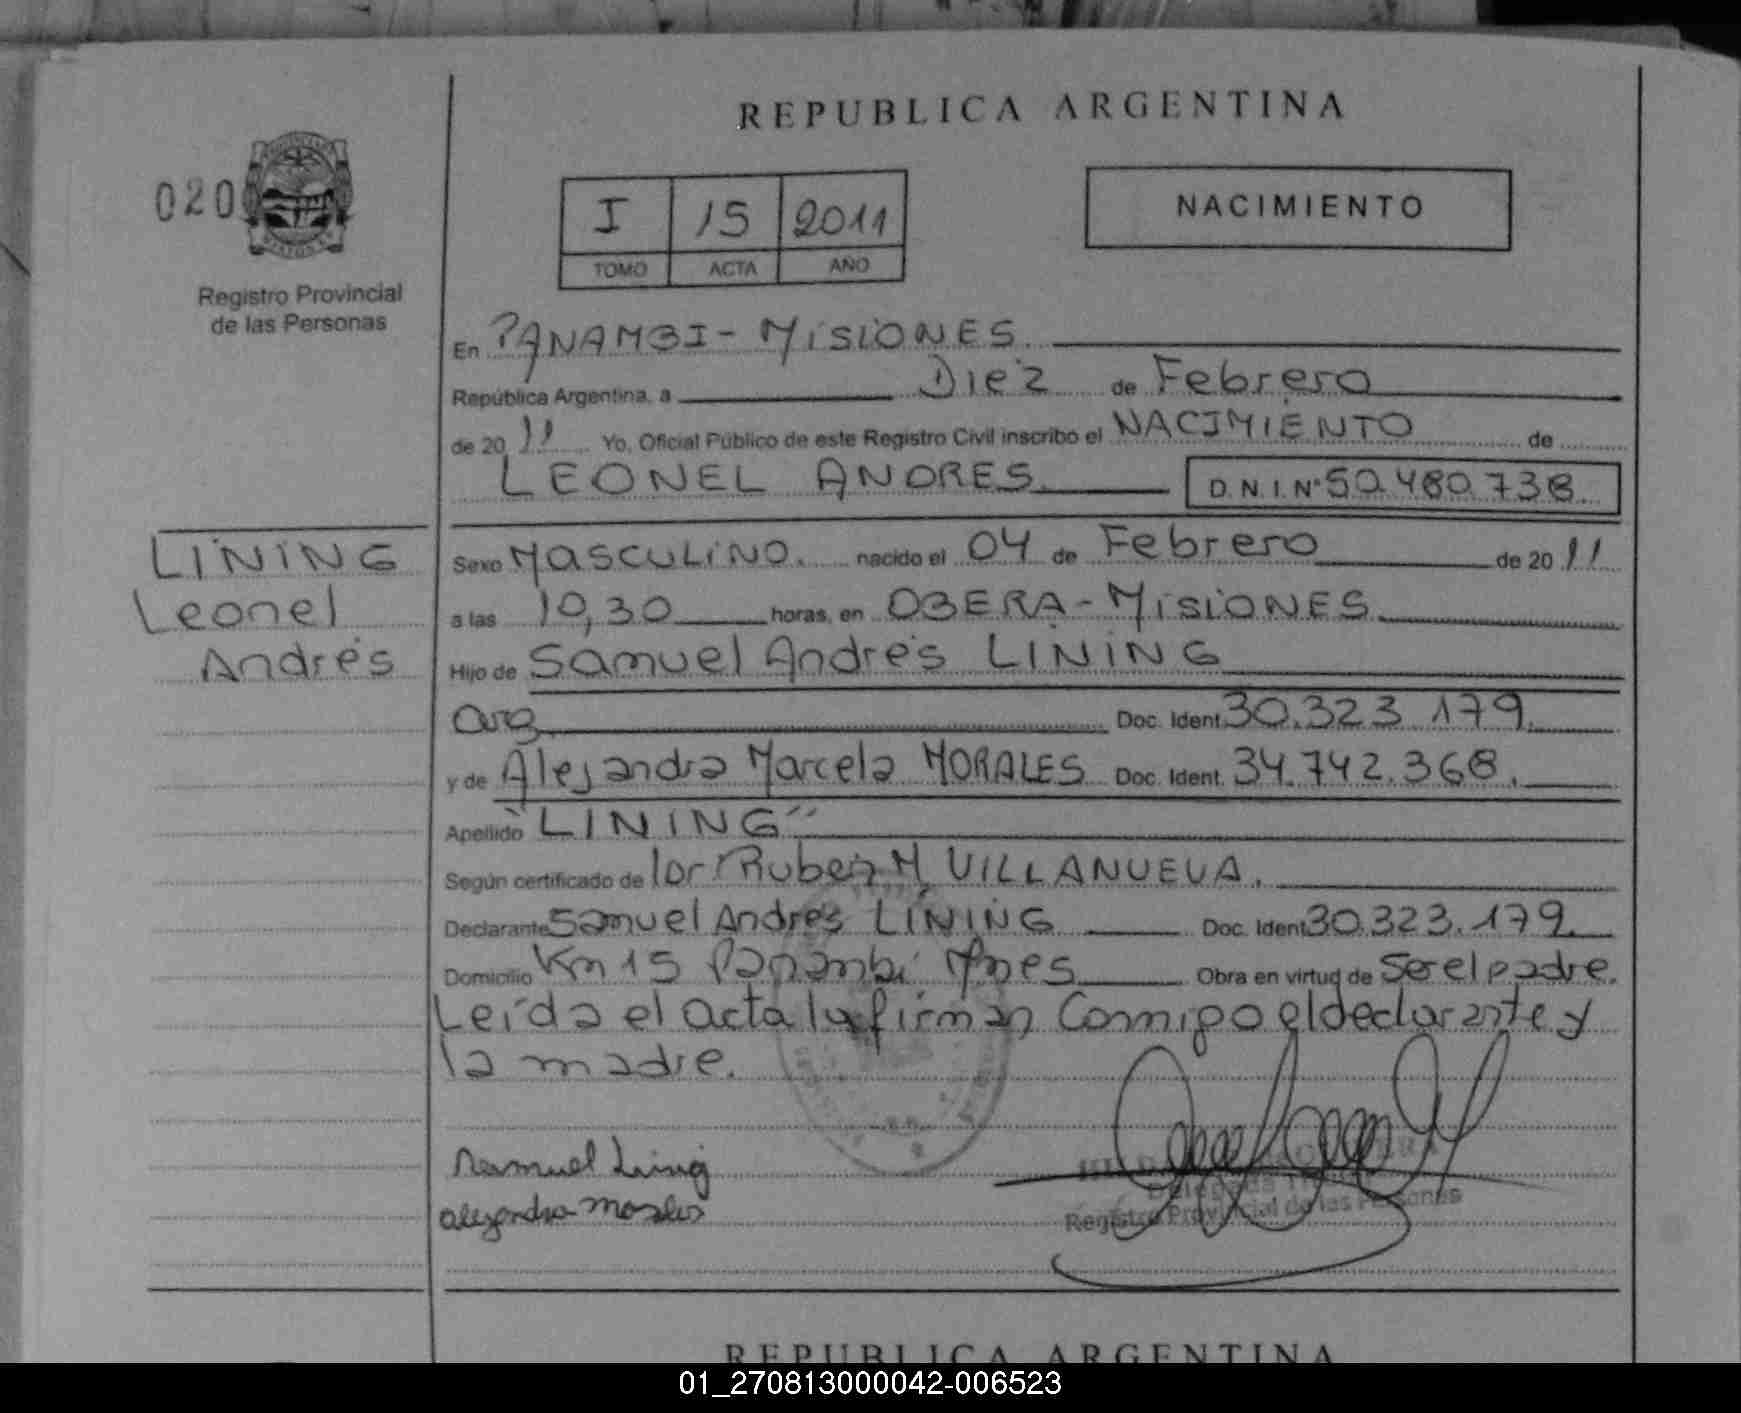 REPUBLICA ARGENTINA
020
I 15 2011
TOMO ACTA AÑO
NACIMIENTO
Registro Provincial
de las Personas
En PANAMBI - MisiONES
República Argentina, a Diez de Febrero
de 20 11 Yo, Oficial Público de este Registro Civil inscribo el NACIMIENTO de
LEONEL ANDRES D.N.I.Nº 50.480.738
LINING
Leonel
Andrés
Sexo MASCULINO. nacido el 04 de Febrero de 20 11
a las 10,30 horas, en OBERA - MisiONES
Hijo de Samuel Andrés LINING
arg Doc. Ident. 30.323.179.
y de Alejandra Marcela MORALES Doc. Ident. 34.742.368.
Apellido "LINING"
Según certificado de Ruben M VILLANUEVA.
Declarante Samuel Andrés LINING Doc. Ident. 30.323.179.
Domicilio Km 15 Panambí Mnes Obra en virtud de Ser el padre.
Leída el acta la firman Conmigo el declarante y
la madre.
Samuel Lining
alejandra Morales
Registro Provincial de las Personas
REPUBLICA ARGENTINA
01_270813000042-006523